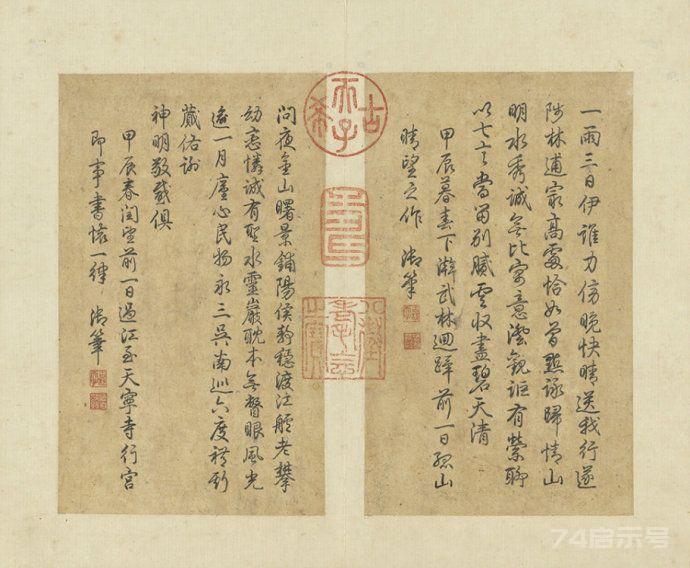 一雨三日伊誰力傍晚快晴送我行遂
陟林逋最高處恰如曾點詠歸情山
明水秀誠無比寄意澄觀詎有縈聊
以七言當留別膩雲收盡碧天清
甲辰暮春下澣武林迴蹕前一日孤山
晴望之作 御筆
古希天子
壽
八徵耄念之寶
問夜金山曙景鋪陽侯穩渡江艫老攀
幼恋憐誠有聖水靈巖耽本無瞥眼風光
逾一月廑心民物永三吳南巡六度禮斯
蕆佑謝
神明敬感俱
甲辰春閏望前一日過江至天寧寺行宮
即事書懷一律 御筆
74启示号